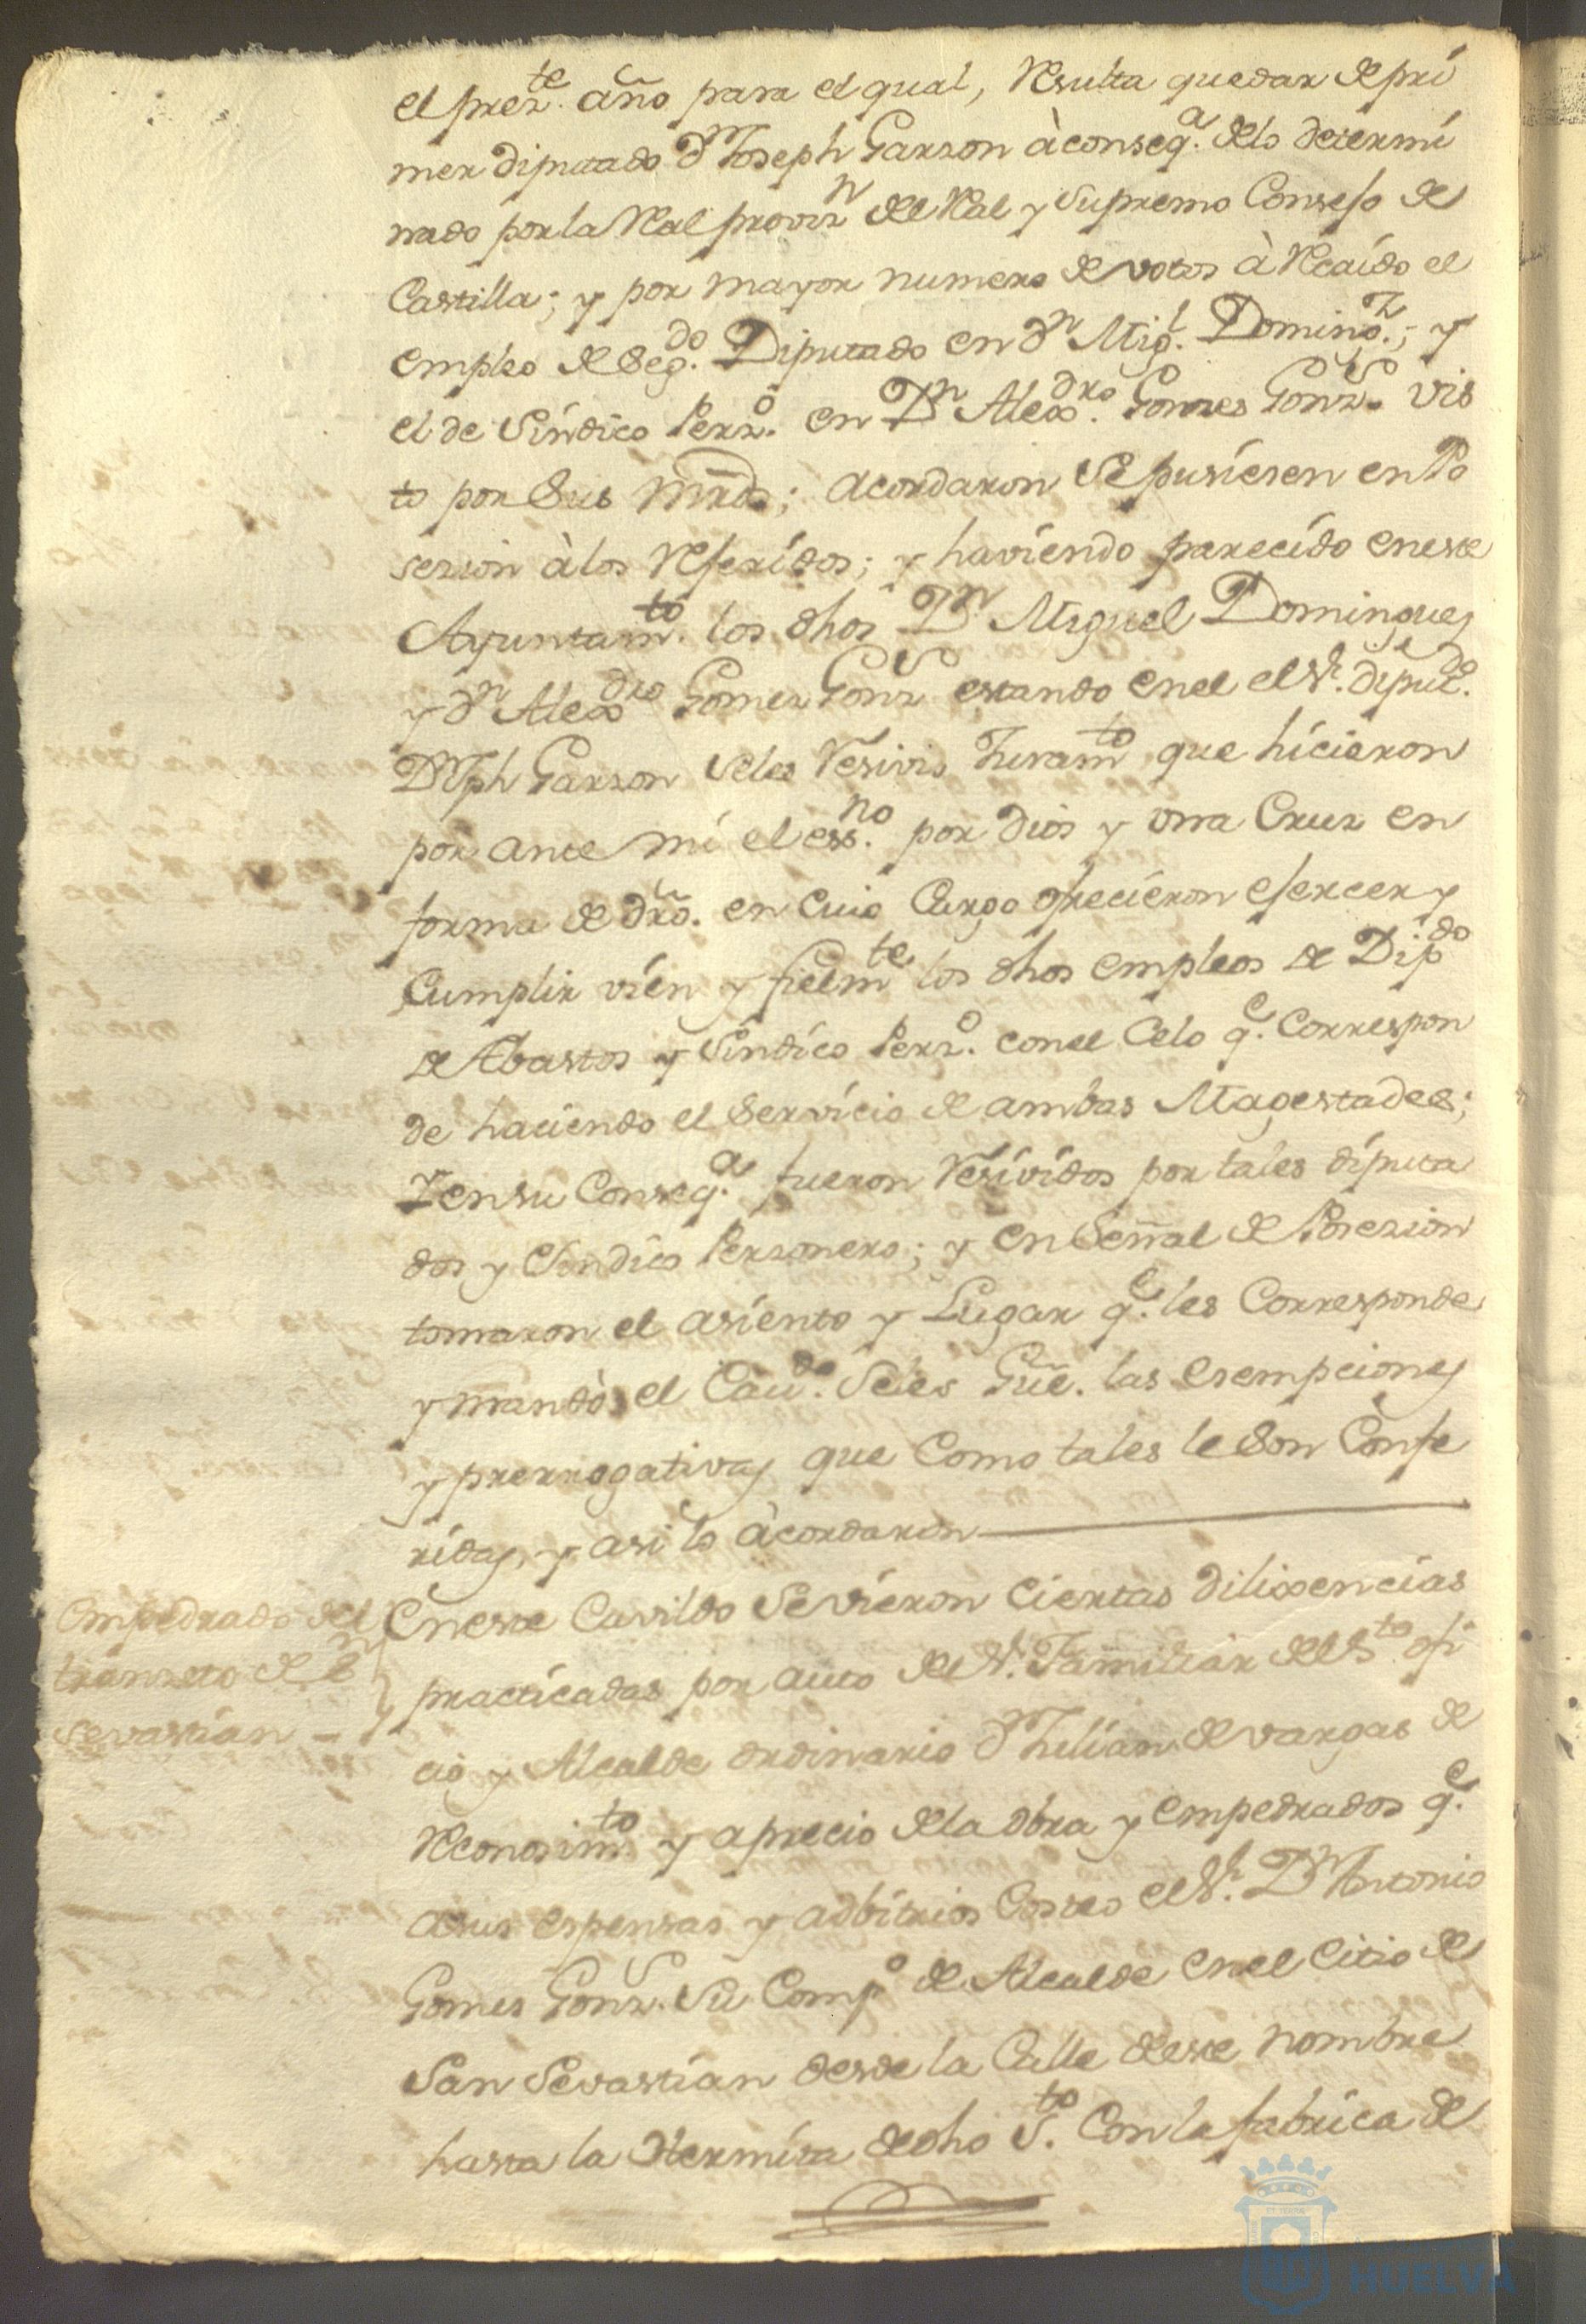 el prez.te año para el qual, Resulta quedar de pri
mer diputado Dn Joseph Garzon à conseq.a de lo determi
nado por la Real provizn del Real y Supremo Consejo de
Castilla; y por mayor numero de votos à Recaido el
empleo de Seg.do Diputado en Dn Mig.l Doming.z; y
el de Síndico Perz.o en Dn Alex.dro Gomes Gonz.s vis
to por Sus mrds; acordaron Se pusiesen en Po
sezion à los Referidos; y haviendo parecido en este
Ayuntam.to los dhos Dn Miguel Dominguez
y Dn Alexdro Gomez Gonzs estando en el el Sr. diput.do
Dn Jph Garzon Seles Resivio Juramto que hicieron
por ante mi el ess.no por Dios y una Cruz en
forma de dro. en cuio Cargo ofrecieron esercer y
Cumplir vien y fielmte los dhos empleos de Dipdo
de Abastos y Síndico Perz.o con el Celo q.e Correspon
de haciendo el Servicio de ambas Magestades;
Y en su Conseq.a fueron Resividos por tales diputa
dos y Sindico Perzonero; y en Señal de Posezion
tomaron el asiento y Lugar q.e les Corresponde
y mandò el Cav.do Seles Gũe. las esempciones
y prerrogativas que Como tales le Son Confe
ridas, y asi lo àcordaron
Empedrado del
transito de Sn
Sevastian
En este Cavildo Se vieron Ciertas dilixencias
practicadas por auto del Sr. Familiar del Sto. ofi
cio y Alcalde ordinario Dn Julian de Vargas de
Reconosimto y aprecio de la obra y empedrados q.e
a sus espensas y adbitrios Costeo el Sr. Dn Antonio
Gomes Gonz.s Su Comp.o de Alcalde en el Citio de
San Sevastian desde la Calle de este nombre
hasta la Hermita de dho S.to Con la fabrica de
HUELVA